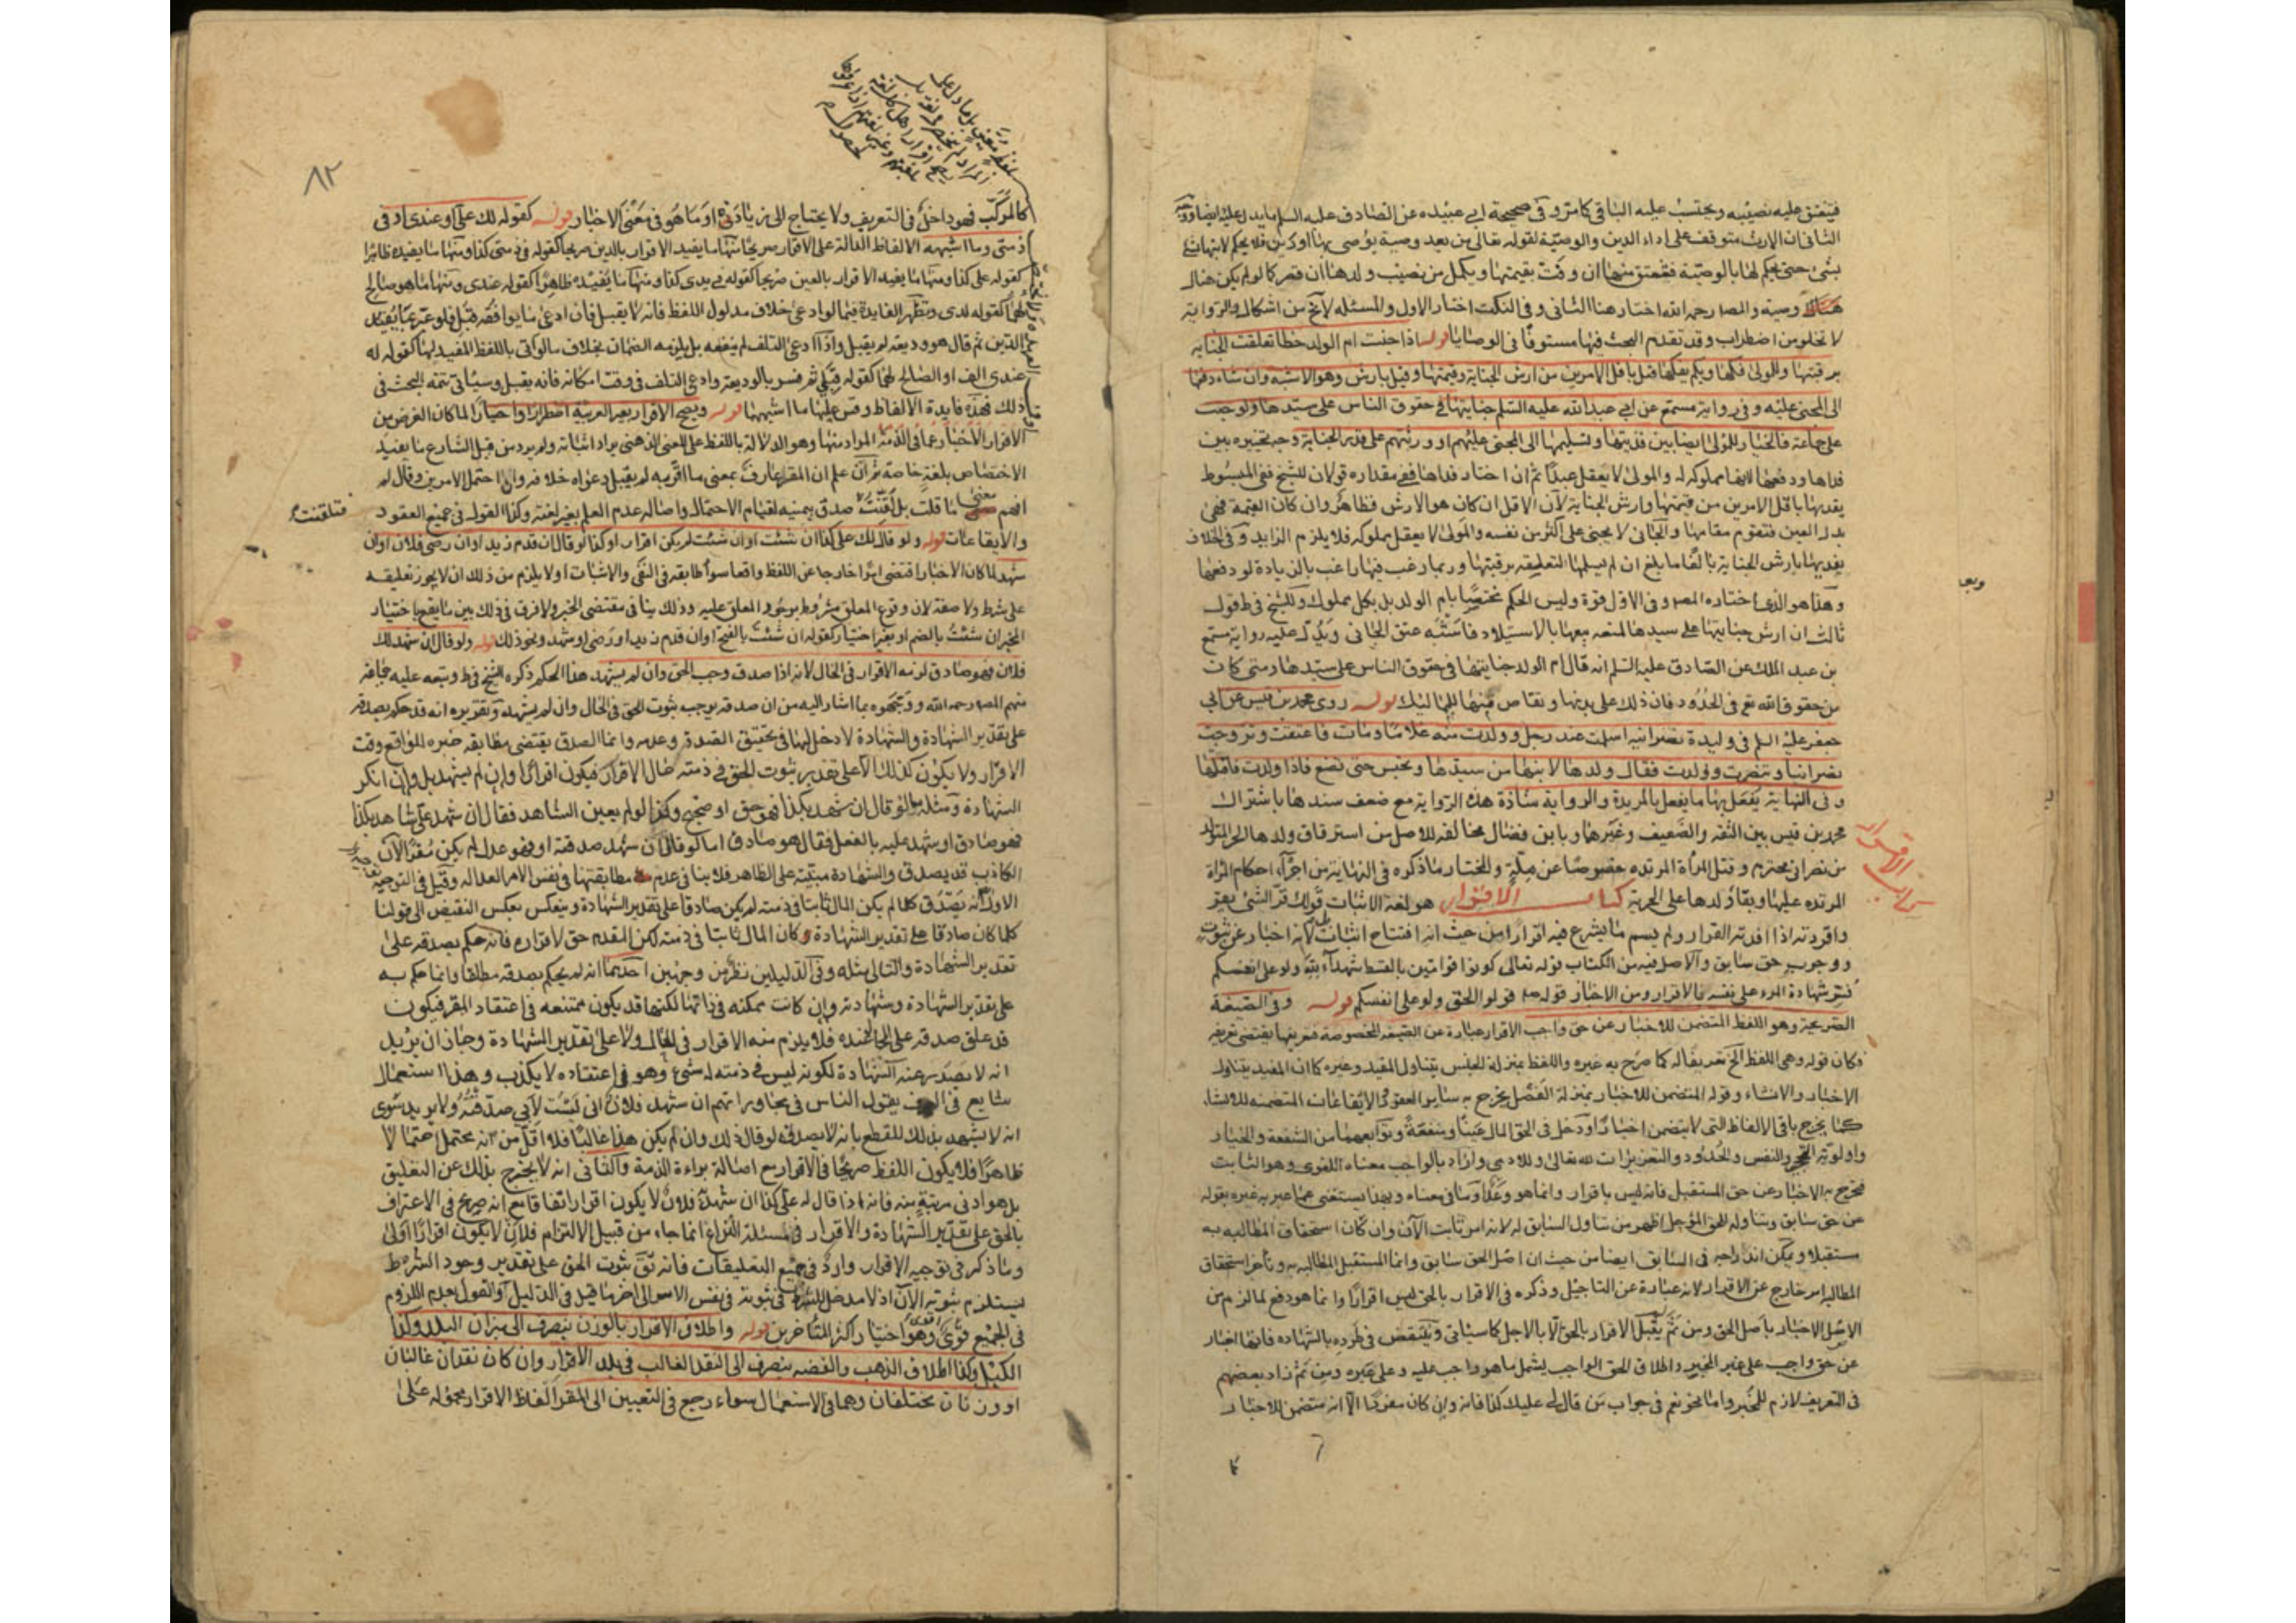 فيعتق عليه نصيبه ويحتسب عليه الباقي كما مر وفي صحيحة ابي عبيده عن الصادق عليه السلم ما يدل عليه ايضا
الثاني ان الارث متوقف على اداء الدين والوصية لقوله تعالى من بعد وصية يوصى بها او دين فلا يحكم لابنها
بشئ حتى يحكم لها بالوصية فتعتق منها ان وفت بقيمتها ويكمل من نصيب ولدها ان قصر كما لو لم يكن هناك
وصية والمصـ رحمه الله اختار هنا الثاني وفي النكت اختار الاول والمسئله لا تخ من اشكال والرواية
لا تخلو من اضطراب وقد تقدم البحث فيها مستوفا في الوصايا قوله اذا جنت ام الولد خطا تعلقت الجناية
برقبتها وللمولى فكها وبكم يفكها قيل باقل الامرين من ارش الجناية وقيمتها وقيل بارش وهو الاشبه وان شاء دفعها
الى المجنى عليه وفي رواية مسمع عن ابي عبد الله عليه السلم جنايتها في حقوق الناس على سيدها ولو جنت
على جماعة فالخيار للمولى ايضا بين فديتها وتسليمها الى المجنى عليهم او ورثتهم على قدر الجناية وجه تخييره بين
فداها ودفعها انها مملوكه له والمولى لا يعقل عبدا ثم ان اختار فداها ففي مقداره قولان للشيخ ففي المبسوط
يفديها باقل الامرين من قيمتها وارش الجناية لان الاقل ان كان هو الارش فظاهر وان كان القيمة فهي
بدل العين فتقوم مقامها والجاني لا يجنى على اكثر من نفسه والمولى لا يعقل مملوكه فلا يلزم الزايد وفي الخلاف
يفديها بارش الجناية بالغا ما بلغ ان لم يسلمها لتعلقه برقبتها وربما رغب فيها راغب بالزيادة لو دفعها
وهذا هو الذي اختاره المصـ وفي الاول قوة وليس الحكم مختصا بام الولد بل بكل مملوك وللشيخ في ط قول
ثالث ان ارش جنايتها على سيدها لمنعه بيعها بالاستيلاد فاشبه عتق الجاني ويدل عليه رواية مسمع
بن عبد الملك عن الصادق عليه السلم انه قال ام الولد جنايتها في حقوق الناس على سيدها ومتى كان
من حقوق الله تع في الحدود فان ذلك على بدنها ويقاص منها للمماليك قوله روى محمد بن قيس عن ابي
جعفر عليه السلم في وليدة نصرانيه اسلمت عند رجل وولدت منه غلاما ومات فاعتقت وتزوجت
نصرانيا وتنصرت وولدت فقال ولدها لابنها من سيدها وتحبس حتى تضع فاذا ولدت فاقتلها
وفي النهاية يفعل بها ما يفعل بالمرتدة والرواية شاذة هذه الرواية مع ضعف سندها باشتراك
محمد بن قيس بين الثقه والضعيف وغيرهما وبابن فضال مخالفه للاصل من استرقاق ولدها الحر المتولد
من نصراني محترم وقتل المرأة المرتده خصوصا عن ملة والمختار ما ذكره في النهاية من اجراء احكام المراة
المرتده عليها وبقاء ولدها على الحرية كتاب الاقرار هو لغة الاثبات قولك قر الشئ يقر
واقررته اذا افدته القرار ولم يسم ما يشرع فيه اقرارا من حيث انه افتتاح اثبات بل لانه اخبار عن ثبوت
ووجوب حق سابق والاصل فيه من الكتاب قوله تعالى كونوا قوامين بالقسط شهداء لله ولو على انفسكم
فسر شهادة المرء على نفسه بالاقرار ومن الاخبار قوله ص قولوا الحق ولو على انفسكم قوله وفي الصيغة
الصريحة وهو اللفظ المتضمن للاخبار عن حق واجب الاقرار عبارة عن الصيغه المخصوصة فتعريفها يقتضى تعريفه
فكان قوله وهى اللفظ الخ تعريفا له كما صرح به غيره واللفظ بمنزلة الجنس يتناول المفيد وغيره كما ان المفيد يتناول
الاخبار والانشاء وقوله المتضمن للاخبار بمنزلة الفصل يخرج به ساير العقود والايقاعات المتضمنه للانشاء
كما يخرج باقي الالفاظ التى لا يتضمن اخبارا ودخل في الحق المال عينا ومنفعة وتوابعهما من الشفعة والخيار
واولوية التحجير والنفس والحدود والتعزيرات لله تعالى وللادمى واراد بالواجب معناه اللغوى وهو الثابت
فخرج به الاخبار عن حق المستقبل فانه ليس باقرار وانما هو وعد او ما في معناه وبهذا يستغنى عما عبر به غيره بقوله
عن حق سابق ويتناوله للحق المؤجل اظهر من تناول السابق له لانه امر ثابت الآن وان كان استحقاق المطالبه به
مستقبلا ويمكن اندراجه في السابق ايضا من حيث ان اصل الحق سابق وانما المستقبل المطالبه به وتاخر استحقاق
المطالبه امر خارج عن الاقرار لانه عبارة عن التاجيل وذكره في الاقرار بالحق ليس اقرارا وانما هو دفع لما لزم من
الاصل الاخبار باصل الحق ومن ثم يقبل الاقرار بالحق لا بالاجل كما سياتي وينتقض في طرده بالشهاده فانها اخبار
عن حق واجب على غير المخبر واطلاق الحق الواجب يشمل ما هو واجب عليه وعلى غيره ومن ثم زاد بعضهم
في التعريف لازم للمخبر واما نحو نعم في جواب من قال لى عليك كذا فانه وان كان مفردا الا انه متضمن للاخبار
كتاب الاقرار
٨٢
كالمركب فهو داخل في التعريف ولا يحتاج الى زيادته او ما هو في معنى الاخبار قوله كقوله لك على او عندى او في
ذمتى وما اشبهه الالفاظ الدالة على الاقرار صريحا منها ما يفيد الاقرار بالدين صريحا كقوله في ذمتى كذا ومنها ما يفيده ظاهرا
كقوله على كذا ومنها ما يفيد الاقرار بالعين صريحا كقوله في يدى كذا ومنها ما يفيده ظاهرا كقوله عندى ومنها ما هو صالح
لهما كقوله لدى وتظهر الفايدة فيما لو ادعى خلاف مدلول اللفظ فانه لا يقبل فان ادعى ما يوافقه قبل فلو عبر بما يفيد
الدين ثم قال هو وديعه لم يقبل واذا ادعى التلف لم ينفعه بل يلزمه الضمان بخلاف ما لو اتى باللفظ المفيد لهما كقوله له
عندى الف او الصالح لهما كقوله قبلى ثم فسر بالوديعة وادعى التلف في وقت امكانه فانه يقبل وسياتى تتمة البحث في
ذلك فهذه فايدة الالفاظ وقس عليها ما اشبهها قوله ويصح الاقرار بغير العربية اضطرارا واختيارا لما كان الغرض من
الاقرار الاخبار عما في الذمة المراد منها وهو الدلالة باللفظ على المعنى الذهنى يراد اثباته ولم يرد من قبل الشارع ما يفيد
الاختصاص بلغة خاصة ثم ان علم ان المقر عارف بمعنى ما اقر به لم يقبل دعواه خلافه وان احتمل الامرين وقال لم
افهم معنى ما قلت بل لقنت صدق بيمينه لقيام الاحتمال واصالة عدم العلم بغير لغته وكذا القول في جميع العقود
والايقاعات قوله ولو قال لك على كذا ان شئت او ان شئت لم يكن اقرار وكذا لو قال ان قدم زيد او ان رضى فلان او ان
شهد لما كان الاخبار اقتضى امرا خارجا عن اللفظ واقعا سواء طابقه في النفى والاثبات او لا يلزم من ذلك ان لا يجوز تعليقه
على شرط ولا صفة لان وقوع المعلق مشروط بوجود المعلق عليه وذلك ينافى مقتضى الخبر ولا فرق في ذلك بين ما يقع باختيار
المخبر ان شئت بالضم او بغير اختياره كقوله ان شئت بالفتح او ان قدم زيد او رضى او شهد ونحو ذلك قوله ولو قال ان شهد لك
فلان فهو صادق لزمه الاقرار في الحال لانه اذا صدق وجب الحق وان لم يشهد هذا الحكم ذكره الشيخ في ط وتبعه عليه جماعة
منهم المصـ رحمه الله ووجهوه بما اشار اليه من ان صدقه يوجب ثبوت الحق في الحال وان لم يشهد وتقريره انه قد حكم بصدقه
على تقدير الشهادة والشهادة لا دخل لها في تحقيق الصدق وعدمه وانما الصدق يقتضى مطابقه خبره للواقع وقت
الاقرار ولا يكون كذلك الا على تقدير ثبوت الحق في ذمته حال الاقرار فيكون اقرارا وان لم يشهد بل وان انكر
الشهادة ومثله ما لو قال ان شهد بكذا فهو حق او صحيح وكذا لو لم يعين الشاهد فقال ان شهد على شاهد بكذا
فهو صادق او شهد عليه بالفعل فقال هو صادق اما لو قال ان شهد صدقته او فهو عدل لم يكن مقرا لان
الكاذب قد يصدق والشهادة مبنية على الظاهر فلا ينافى عدم مطابقتها في نفس الامر العداله وقيل في التوجيه
الاول انه يصدق كلما لم يكن المال ثابتا في ذمته لم يكن صادقا على تقدير الشهادة وينعكس بعكس النقيض الى قولنا
كلما كان صادقا على تقدير الشهادة كان المال ثابتا في ذمته لكن المقدم حق لاقراره فانه حكم بصدقه على
تقدير الشهادة والتالى مثله وفى الدليلين نظر من وجهين احدهما انه لم يحكم بصدقه مطلقا وانما حكم به
على تقدير الشهادة وشهادته وان كانت ممكنه في ذاتها لكنها قد يكون ممتنعه في اعتقاد المقر فيكون
قد علق صدقه على المحال عنده فلا يلزم منه الاقرار في الحال ولا على تقدير الشهادة وجاز ان يريد
انه لا يصدر عنه الشهادة لكونه ليس في ذمته له شئ وهو في اعتقاده لا يكذب وهذا استعمال
شايع في العرف يقول الناس في محاوراتهم ان شهد فلان انى لست لابى صدقته ولا يريد سوى
انه لا يشهد بذلك للقطع بانه لا يصدقه لو قال ذلك وان لم يكن هذا غالبا فلا اقل من انه محتمل احتمالا
ظاهرا فلا يكون اللفظ صريحا في الاقرار مع اصالة براءة الذمة والثانى انه لا يخرج بذلك عن التعليق
بل هو ادنى مرتبة منه فانه اذا قال له على كذا ان شهد فلان لا يكون اقرارا اتفاقا مع انه صريح في الاعتراف
بالحق على تقدير الشهادة والاقرار في مسئلة النزاع انما جاء من قبيل الالتزام فلان لا يكون اقرارا اولى
وما ذكر في توجيه الاقرار وارد في جميع التعليقات فانه يق ثبوت الحق على تقدير وجود الشرط
يستلزم ثبوته الآن اذ لا مدخل للشرط في ثبوته في نفس الامر الى اخر ما قيل في الدليل والقول بعدم اللزوم
في الجميع قوى وهو اختيار اكثر المتاخرين قوله واطلاق الاقرار بالوزن ينصرف الى ميزان البلد وكذا
الكيل وكذا اطلاق الذهب والفضه ينصرف الى النقد الغالب في بلد الاقرار وان كان نقدان غالبان
او وزنان مختلفان وهما في الاستعمال سواء رجع في التعيين الى المقر الفاظ الاقرار محموله على